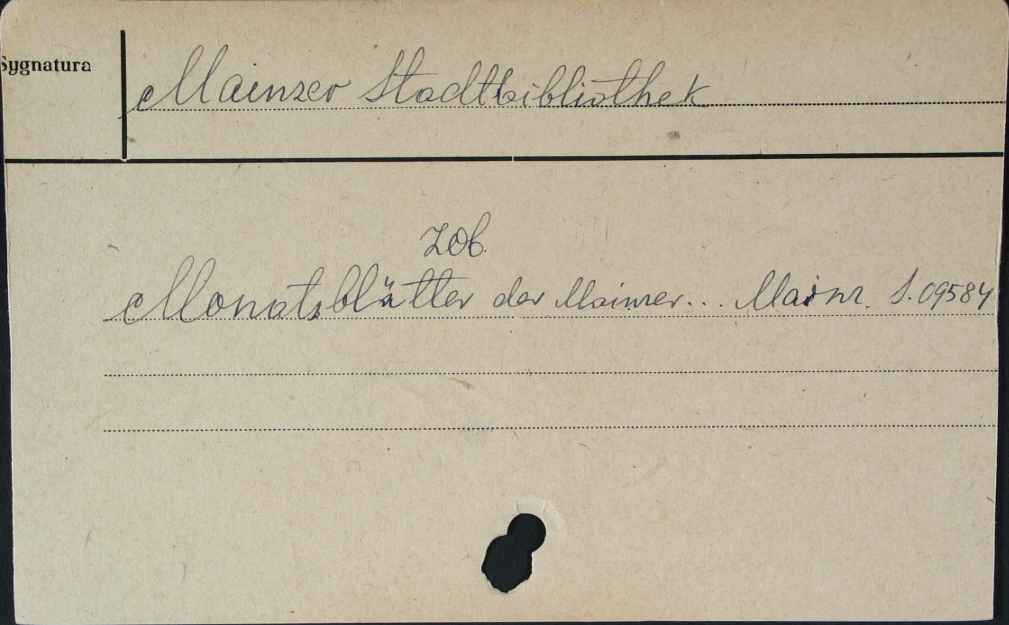 Sygnatura
Mainzer Stadtbibliothek
zob.
Monatsblätter der Mainzer... Mainz. S. 09584